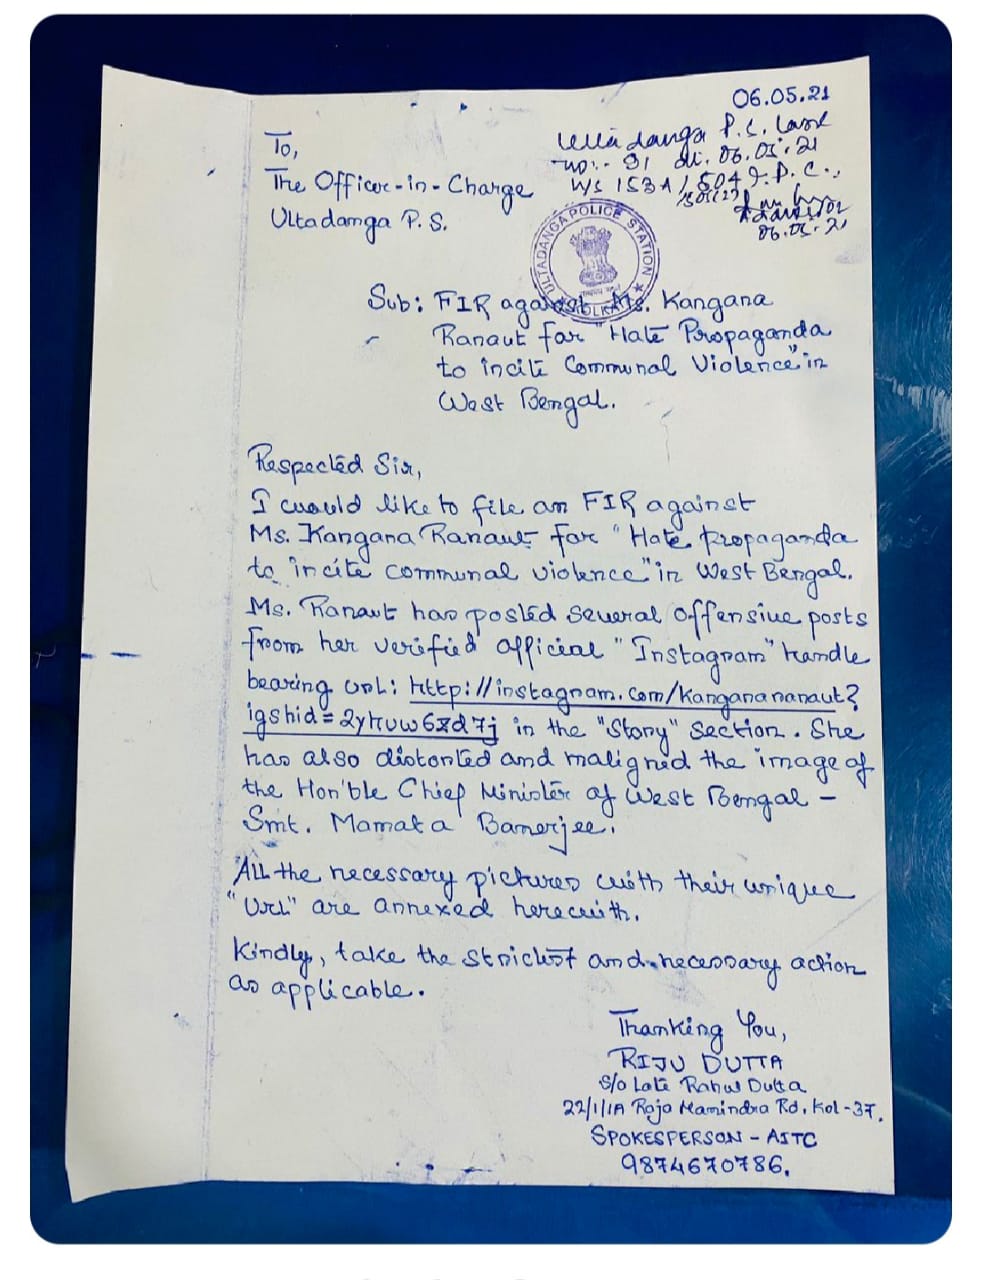 06.05.21
Ultadanga P.S. Case
no:- 91 dt. 06.05.21
u/s 153A/504 I.P.C.
06.05.21
To,
The Officer-in-Charge
Ultadanga P.S.
ULTADANGA POLICE STATION
KOLKATA
Sub: FIR against Ms. Kangana
Ranaut for "Hate Propaganda
to incite Communal Violence" in
West Bengal.
Respected Sir,
I would like to file an FIR against
Ms. Kangana Ranaut for "Hate Propaganda
to incite communal violence" in West Bengal.
Ms. Ranaut has posted several offensive posts
from her verified official "Instagram" handle
bearing url: http://instagram.com/kanganaranaut?
igshid= in the "Story" section. She
has also distorted and maligned the image of
the Hon'ble Chief Minister of West Bengal –
Smt. Mamata Banerjee.
All the necessary pictures with their unique
"Url" are annexed herewith.
Kindly, take the strictest and necessary action
as applicable.
Thanking You,
RIJU DUTTA
S/o Late Rahul Dutta
22/1/1A Raja Manindra Rd, Kol-37.
SPOKESPERSON - AITC
9874670786.